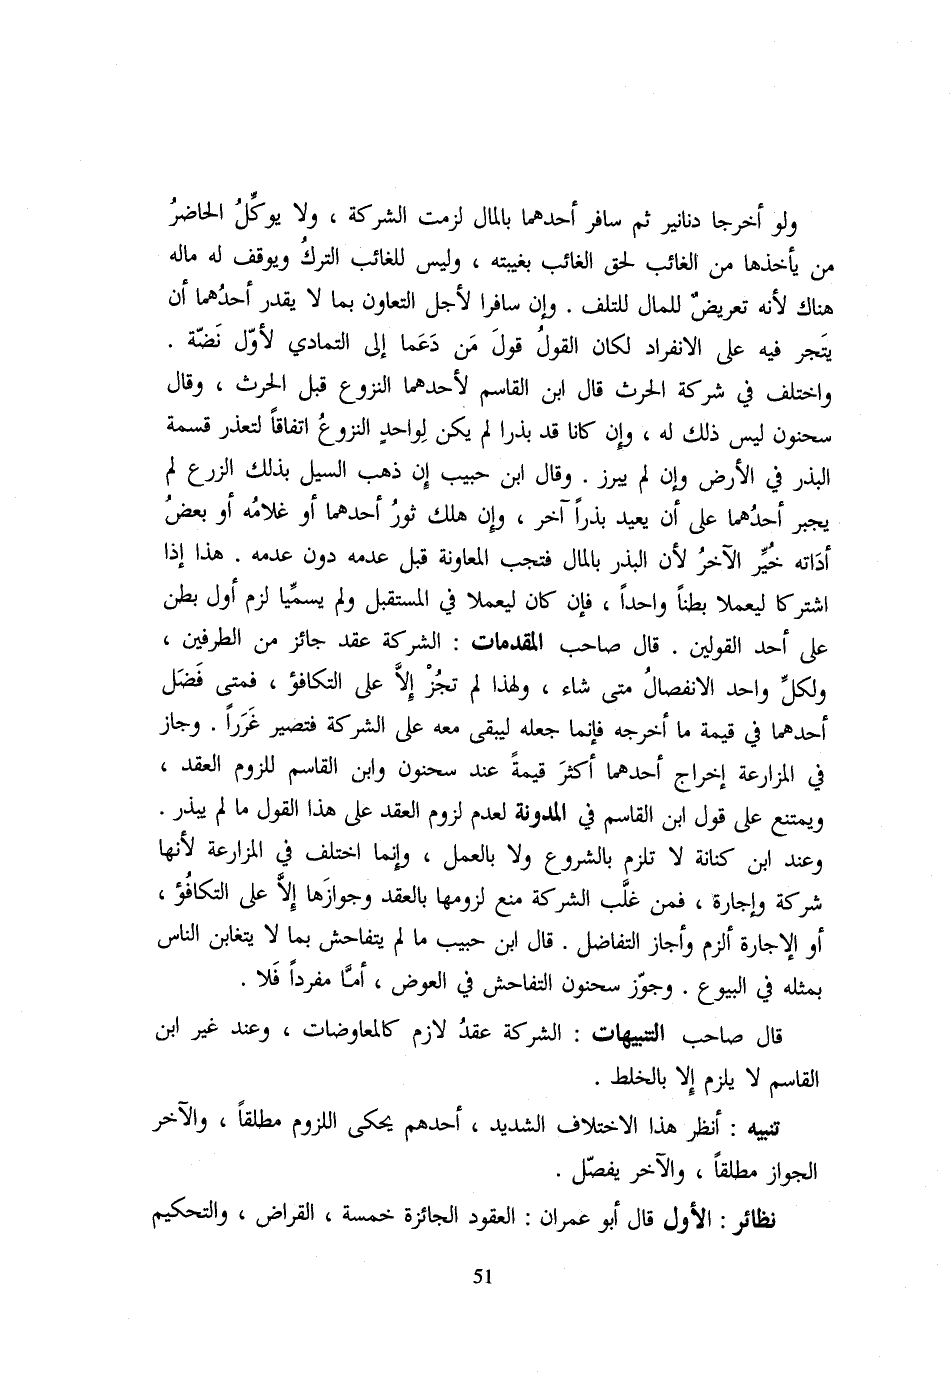 ولو أخرجا دنانير ثم سافر أحدهما بالمال لزمت الشركة ، ولا يوكِّلُ الحاضرُ
من يأخذها من الغائب لحق الغائب بغيبته ، وليس للغائب التركُ ويوقف له ماله
هناك لأنه تعريضٌ للمال للتلف . وإن سافرا لأجل التعاون بما لا يقدر أحدُهما أن
يتَجر فيه على الانفراد لكان القولُ قولَ مَن دَعَما إلى التمادي لأوّل نَضّة .
واختلف في شركة الحرث قال ابن القاسم لأحدهما النزوع قبل الحرث ، وقال
سحنون ليس ذلك له ، وإن كانا قد بذرا لم يكن لِواحدٍ النزوعُ اتفاقاً لتعذر قسمة
البذر في الأرض وإن لم يبرز . وقال ابن حبيب إن ذهب السيل بذلك الزرع لم
يجبر أحدُهما على أن يعيد بذراً آخر ، وإن هلك ثورُ أحدهما أو غلامُه أو بعضُ
أدَاته خُيِّر الآخرُ لأن البذر بالمال فتجب المعاونة قبل عدمه دون عدمه . هذا إذا
اشتركا ليعملا بطناً واحداً ، فإن كان ليعملا في المستقبل ولم يسمِّيا لزم أول بطن
على أحد القولين . قال صاحب المقدمات : الشركة عقد جائز من الطرفين ،
ولكلِّ واحد الانفصالُ متى شاء ، ولهذا لم تجُزْ إلاَّ على التكافؤ ، فمتى فَضَل
أحدهما في قيمة ما أخرجه فإنما جعله ليبقى معه على الشركة فتصير غَرَراً . وجاز
في المزارعة إخراج أحدهما أكثرَ قيمةً عند سحنون وابن القاسم للزوم العقد ،
ويمتنع على قول ابن القاسم في المدونة لعدم لزوم العقد على هذا القول ما لم يبذر .
وعند ابن كنانة لا تلزم بالشروع ولا بالعمل ، وإنما اختلف في المزارعة لأنها
شركة وإجارة ، فمن غلَّب الشركة منع لزومها بالعقد وجوازَها إلاَّ على التكافُؤ ،
أو الإجارة ألزم وأجاز التفاضل . قال ابن حبيب ما لم يتفاحش بما لا يتغابن الناس
بمثله في البيوع . وجوّز سحنون التفاحش في العوض ، أمَّا مفرداً فَلا .
قال صاحب التنبيهات : الشركة عقدُ لازم كالمعاوضات ، وعند غير ابن
القاسم لا يلزم إلا بالخلط .
تنبيه : أنظر هذا الاختلاف الشديد ، أحدهم يحكى اللزوم مطلقاً ، والآخر
الجواز مطلقاً ، والآخر يفصّل .
نظائر : الأول قال أبو عمران : العقود الجائزة خمسة ، القراض ، والتحكيم
51